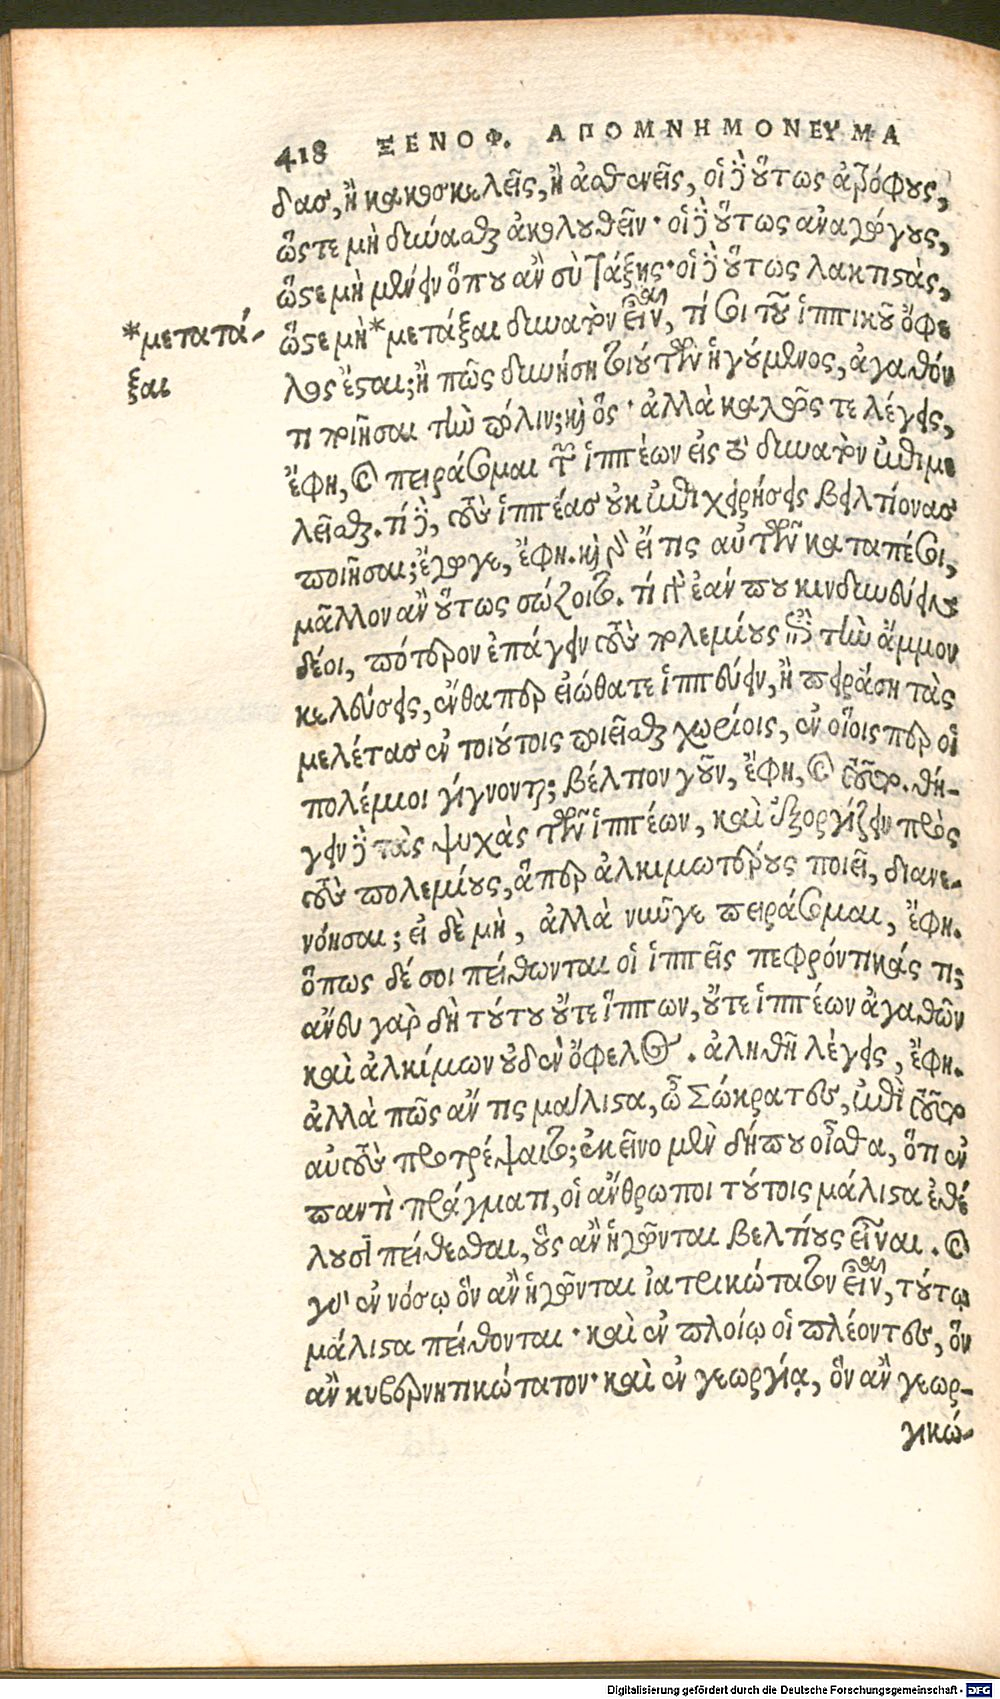 418 ΞΕΝΟΦ. ΑΠΟΜΝΗΜΟΝΕΥΜΑ
δας, ἢ κακοσκελεῖς, ἢ ἀσθενεῖς, οἱ δὲ οὕτως ἀτρόφους,
ὥστε μὴ δύνασθαι ἀκολουθεῖν· οἱ δὲ οὕτως ἀναγώγους,
ὥστε μὴ μένειν ὅπου ἂν σὺ τάξῃς· οἱ δὲ οὕτως λακτιστὰς,
ὥστε μὴ *μετάξαι δυνατὸν εἶναι, τί σοι τοῦ ἱππικοῦ ὄφε
*μετατά-
ξαι
λος ἔσται; ἢ πῶς δυνήσῃ τοιούτων ἡγούμενος, ἀγαθόν
τι ποιῆσαι τὴν πόλιν; καὶ ὅς· ἀλλὰ καλῶς τε λέγεις,
ἔφη, καὶ πειράσομαι τῶν ἱππέων εἰς τὸ δυνατὸν ἐπιμε
λεῖσθαι. τί δὲ, τοὺς ἱππέας οὐκ ἐπιχειρήσεις βελτίονας
ποιῆσαι; ἔγωγε, ἔφη. καὶ γὰρ εἴ τις αὐτῶν καταπέσοι,
μᾶλλον ἂν οὕτως σώζοιτο. τί δὲ ἐάν που κινδυνεύειν
δέοι, πότερον ἐπάγειν τοὺς πολεμίους ἐπὶ τὴν ἄμμον
κελεύσεις, ἔνθαπερ εἰώθατε ἱππεύειν, ἢ πειράσῃ τὰς
μελέτας ἐν τοιούτοις ποιεῖσθαι χωρίοις, ἐν οἵοισπερ οἱ
πολέμιοι γίγνονται; βέλτιον γοῦν, ἔφη, καὶ τοῦτο. θή-
γειν δὲ τὰς ψυχὰς τῶν ἱππέων, καὶ ἐξοργίζειν πρὸς
τοὺς πολεμίους, ἅπερ ἀλκιμωτέρους ποιεῖ, διανε-
νόησαι; εἰ δὲ μὴ, ἀλλὰ νῦνγε πειράσομαι, ἔφη.
ὅπως δέ σοι πείθωνται οἱ ἱππεῖς πεφρόντικάς τι;
ἄνευ γὰρ δὴ τούτου οὔτε ἵππων, οὔτε ἱππέων ἀγαθῶν
καὶ ἀλκίμων οὐδὲν ὄφελος. ἀληθῆ λέγεις, ἔφη.
ἀλλὰ πῶς ἄν τις μάλιστα, ὦ Σώκρατες, ἐπὶ τοῦτο
αὐτοὺς προτρέψαιτο; ἐκεῖνο μὲν δήπου οἶσθα, ὅτι ἐν
παντὶ πράγματι, οἱ ἄνθρωποι τούτοις μάλιστα ἐθέ
λουσι πείθεσθαι, οὓς ἂν ἡγῶνται βελτίους εἶναι. καὶ
γὰρ ἐν νόσῳ ὃν ἂν ἡγῶνται ἰατρικώτατον εἶναι, τούτῳ
μάλιστα πείθονται· καὶ ἐν πλοίῳ οἱ πλέοντες, ὃν
ἂν κυβερνητικώτατον· καὶ ἐν γεωργίᾳ, ὃν ἂν γεωρ-
γικώ-
Digitalisierung gefördert durch die Deutsche Forschungsgemeinschaft - DFG